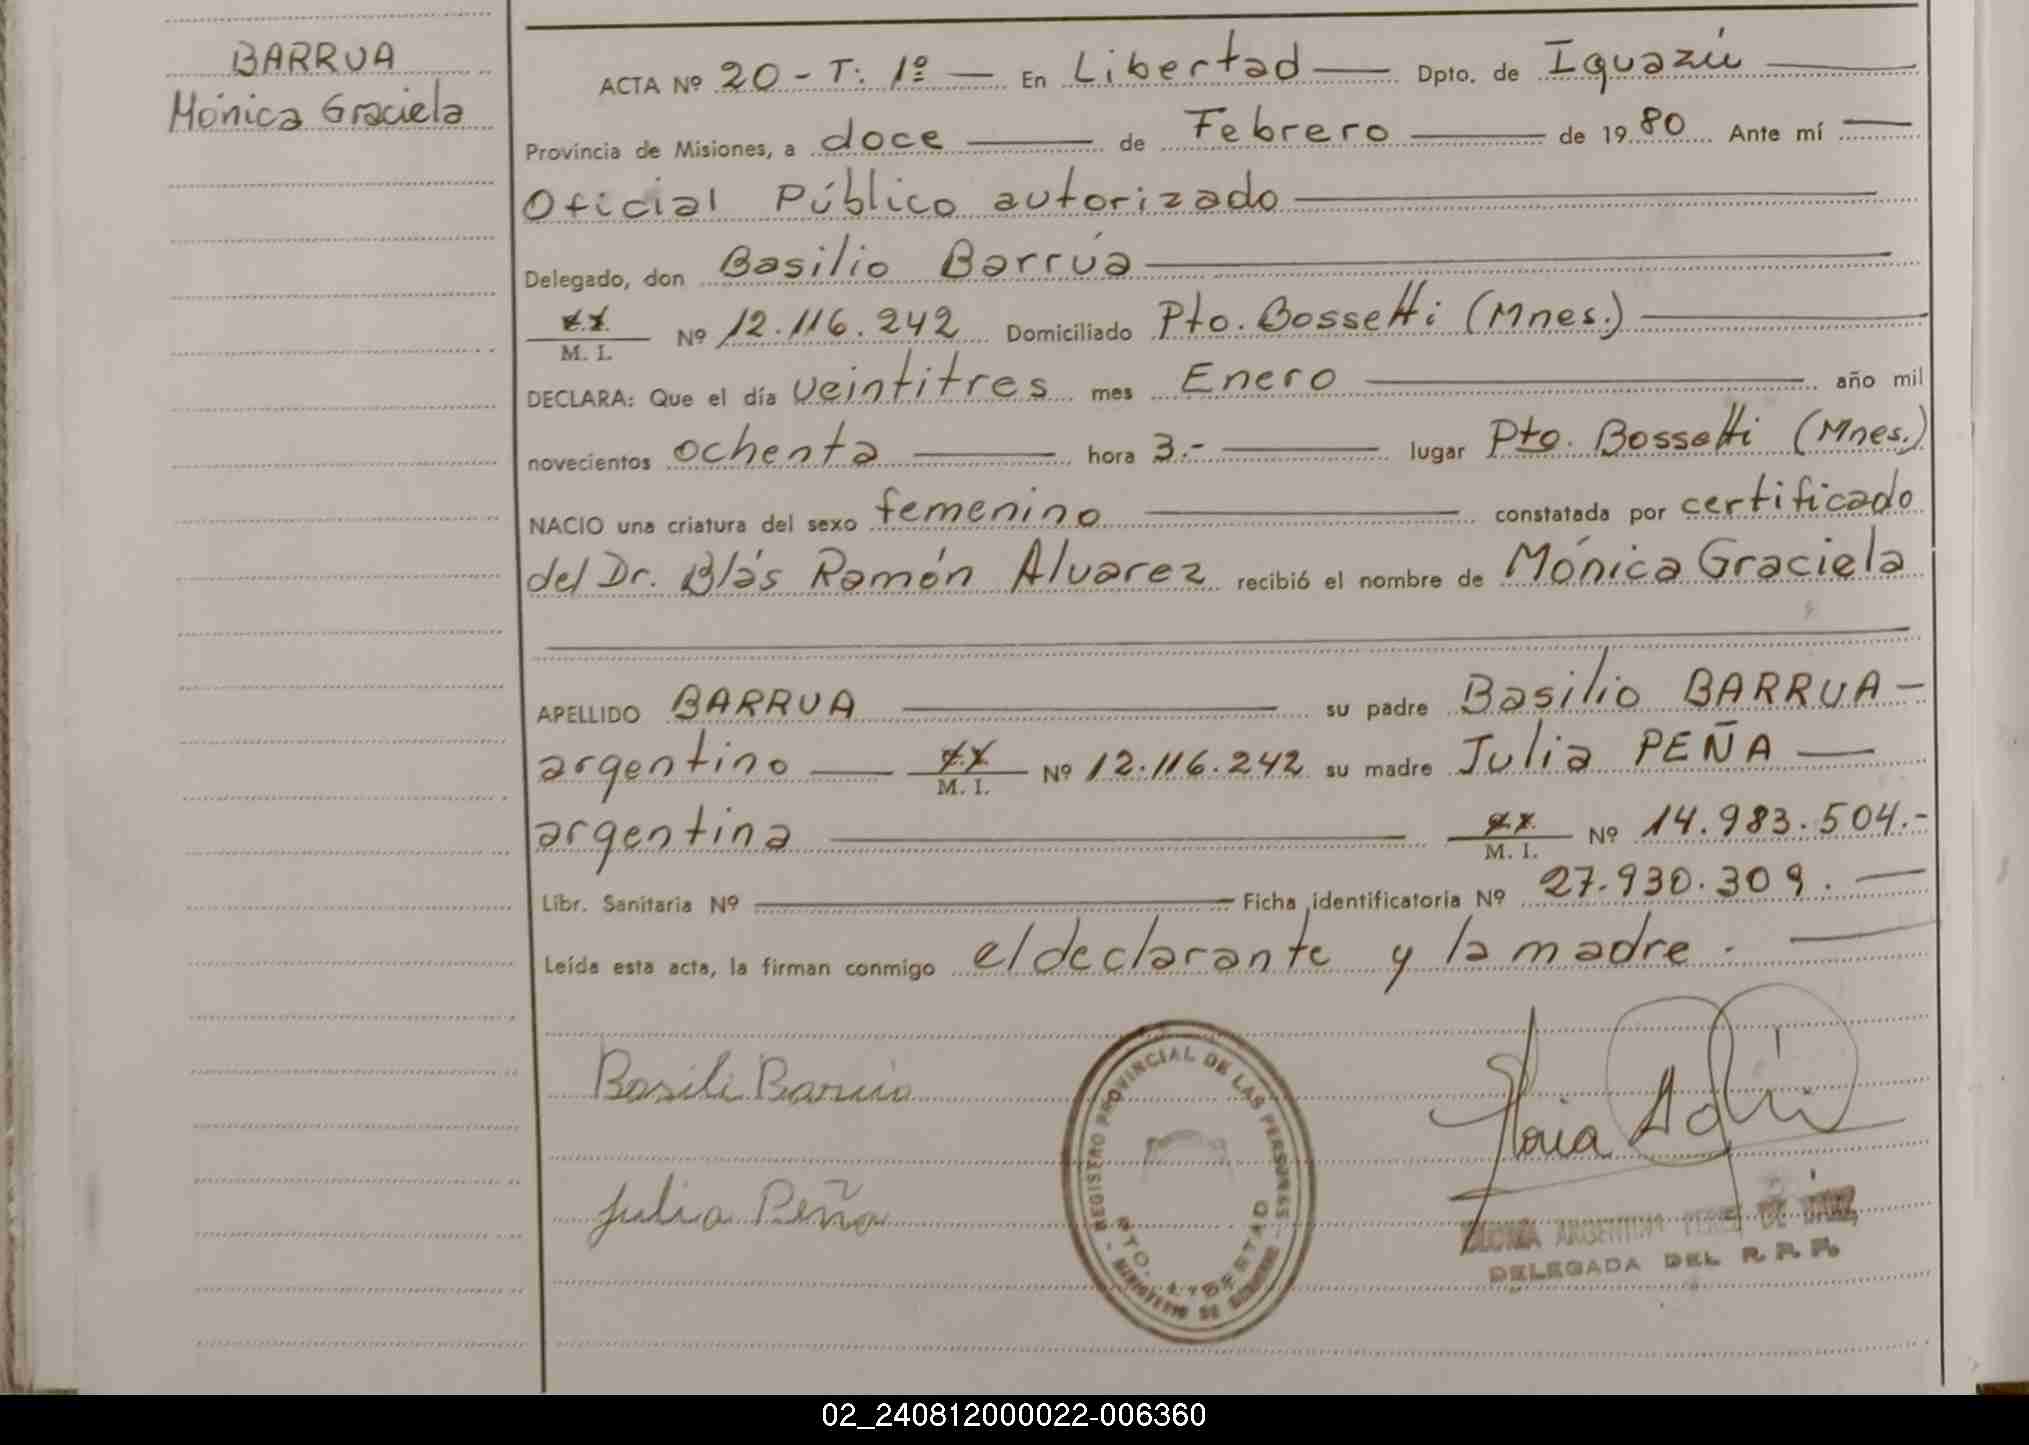 BARRUA
Mónica Graciela
ACTA Nº 20 - T: 1º — En Libertad — Dpto. de Iguazú —
Provincia de Misiones, a doce — de Febrero — de 1980 Ante mí —
Oficial Público autorizado —
Delegado, don Basilio Barrúa —
M. I. Nº 12.116.242 Domiciliado Pto. Bossetti (Mnes.) —
DECLARA: Que el día veintitres mes Enero — año mil
novecientos ochenta — hora 3.- — lugar Pto. Bossetti (Mnes.)
NACIO una criatura del sexo femenino — constatada por certificado
del Dr. Blás Ramón Alvarez recibió el nombre de Mónica Graciela
APELLIDO BARRUA — su padre Basilio BARRUA —
argentino — M. I. Nº 12.116.242 su madre Julia PEÑA —
argentina — M. I. Nº 14.983.504.-
Libr. Sanitaria Nº — Ficha identificatoria Nº 27.930.309. —
Leída esta acta, la firman conmigo el declarante y la madre. —
Basili Barrúa
Julia Peña
REGISTRO PROVINCIAL DE LAS PERSONAS
PTO. LIBERTAD
MINISTERIO DE GOBIERNO
ARGENTINA PEREZ DE
DELEGADA DEL R. P. P.
02_240812000022-006360